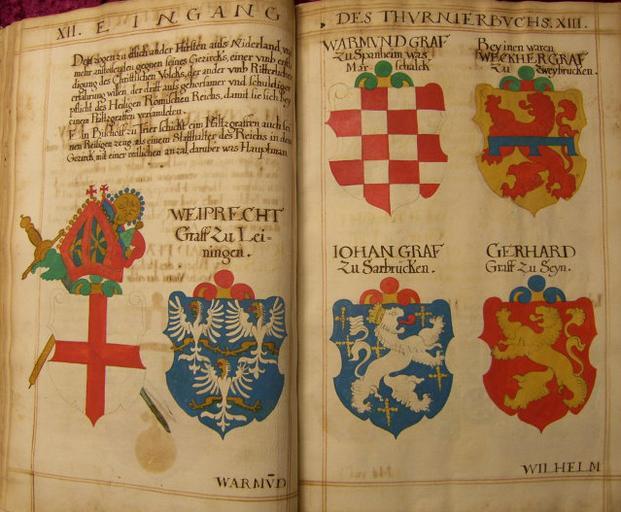 XII. EINGANG
Derzogen zu
ander Fürsten aus Niderland,
mehr
digung des Christlichen Volcks, der ander umb Ritterlicher
erfahrung willen der dritt aus gehorsamer und schuldiger
pflicht des Heiligen Römischen Reichs, damit sie sich bey
einem Pfaltzgraffen versamleten.
Bischoff zu Trier schickt ein Pfaltzgraffen auch
nen Reisigen zeug, als einem Statthalter des Reichs in dem
Gezirck, mit einer redlichen anzal, darüber was Hauptman
WEIPRECHT
Graff Zu Lei-
ningen.
WARMVD
DES THVRNIERBVCHS. XIII.
WARMVND GRAF
zu Spanheim was
Mar-schalck
Bey inen waren
WECKHER GRAF
zu Zweybrucken.
IOHAN GRAF
Zu Sarbrucken.
GERHARD
Graff zu Seyn.
WILHELM